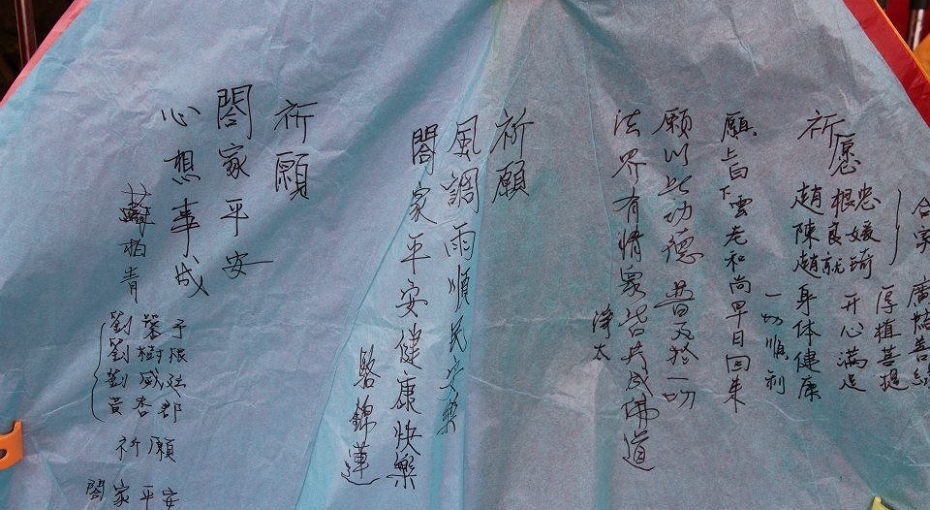 祈愿
趙根忠
陳良媛
趙就琦
合家
廣結善緣
厚植菩提
开心滿足
身体健康
一切順利
願上白下雲老和尚早日回来
願以此功德 普及於一切
法界有情眾皆共成佛道
淨太
祈願
風調雨順民安樂
閤家平安健康快樂
駱錦蓮
祈願
閤家平安
心想事成
蘇柏青
劉葉于
劉樹根
劉威廷
黃杏郡
祈願
閤家平安